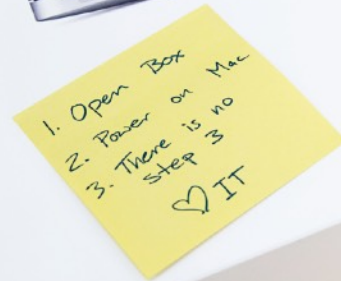 1. Open Box
2. Power on Mac
3. There is no
step 3
♡ IT